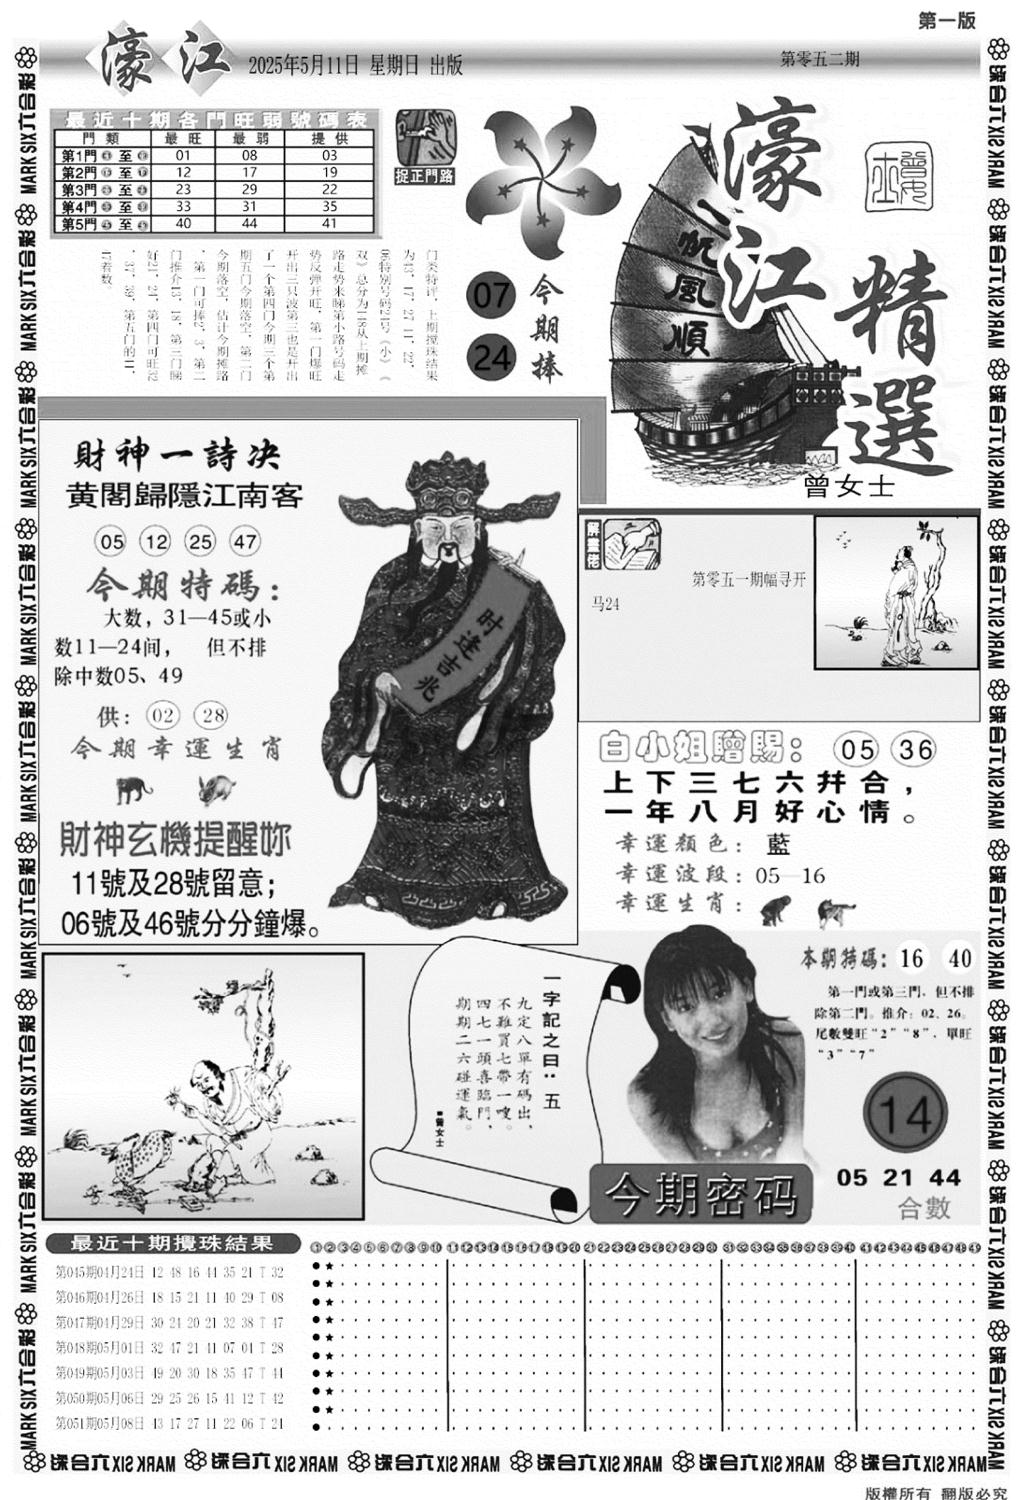 第一版
濠江
2025年5月11日 星期日 出版
第零五二期
最近十期各門旺弱號碼表
門類 最旺 最弱 提供
第1門 至 01 08 03
第2門 至 12 17 19
第3門 至 23 29 22
第4門 至 33 31 35
第5門 至 40 44 41
捉正門路
门类特评，上期搅珠结果
为43，17，27，11，22，
06特别号码24号（小）（
双》总分为148从上期摊
路走势来睇第小路号码走
势反弹开旺，第一门爆旺
开出三只波第三也是开出
了一个第四门今期三个第
期五门今期落空，第二门
今期落空，估计今期摊路
，第一门可捧2，3，第二
门推介13，18，第三门睇
好21，24，第四门可旺32
，37，39，第五门的41，
47着数。
07
24
今期捧
一帆風順
濠江
精選
曾女士
財神一詩决
黄閣歸隱江南客
05 12 25 47
今期特碼：
大数，31—45或小
数11—24间， 但不排
除中数05、49
供：02 28
今期幸運生肖
財神玄機提醒妳
11號及28號留意；
06號及46號分分鐘爆。
时逢吉兆
解畫佬
第零五一期幅寻开
马24
白小姐贈賜：05 36
上下三七六幷合，
一年八月好心情。
幸運顏色：藍
幸運波段：05—16
幸運生肖：
一字記之曰：五
九定八單有碼出，
不難買七帶一嗖。
四七一頭喜臨門，
期期二六碰運氣。
■曾女士
本期特碼：16 40
第一門或第三門，但不排
除第二門。推介：02、26。
尾數雙旺“2”“8”，單旺
“3”“7”
14
今期密码
05 21 44
合數
最近十期攪珠結果
第045期04月24日 12 48 16 44 35 21 T 32
第046期04月26日 18 15 21 11 40 29 T 08
第047期04月29日 30 24 20 21 32 38 T 47
第048期05月01日 32 47 21 41 07 01 T 28
第049期05月03日 49 20 30 18 35 47 T 41
第050期05月06日 29 25 26 15 41 12 T 42
第051期05月08日 43 17 27 11 22 06 T 24
MARK SIX六合彩
版權所有 翻版必究